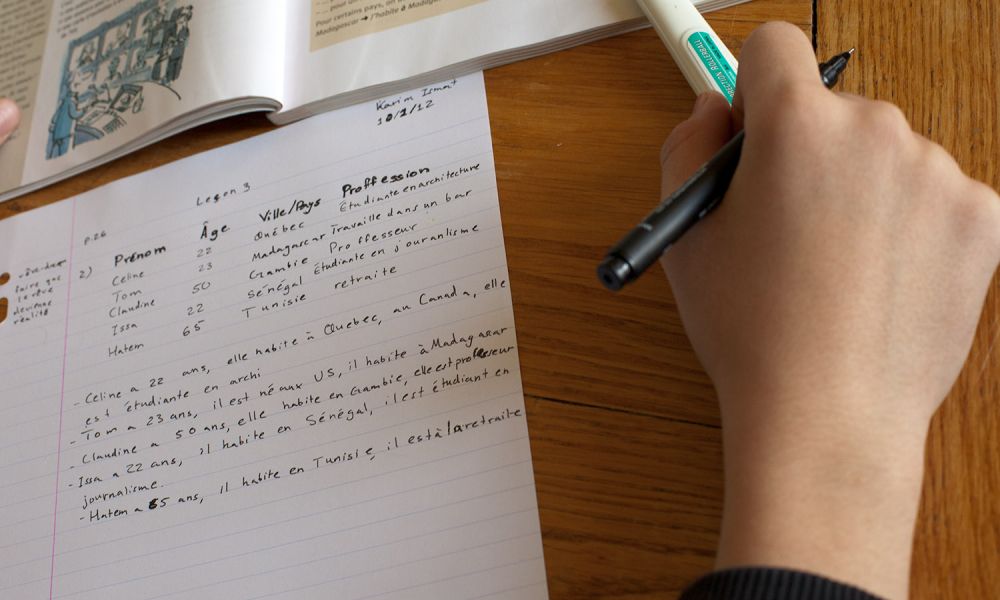 Pour certains pays, on
Madagascar → j'habite à Madagas
CORRECTION ROLLERBALL
Karim
10/1/12
Leçon 3
p.26
2) Prénom Âge Ville/Pays Proffession
Celine 22 Québec Étudiante en architecture
Tom 23 Madagascar Travaille dans un bar
Claudine 50 Gambie Proffesseur
Issa 22 Sénégal Étudiante en journalisme
Hatem 65 Tunisie retraite
faire que
le rêve
devienne
réalité
- Celine a 22 ans, elle habite à Quebec, au Canada, elle
est étudiante en archi
- Tom a 23 ans, il est né aux US, il habite à Madagascar
- Claudine a 50 ans, elle habite en Gambie, elle est professeur
- Issa a 22 ans, il habite en Sénégal, il est étudiant en
journalisme.
- Hatem a 65 ans, il habite en Tunisie, il est à la retraite